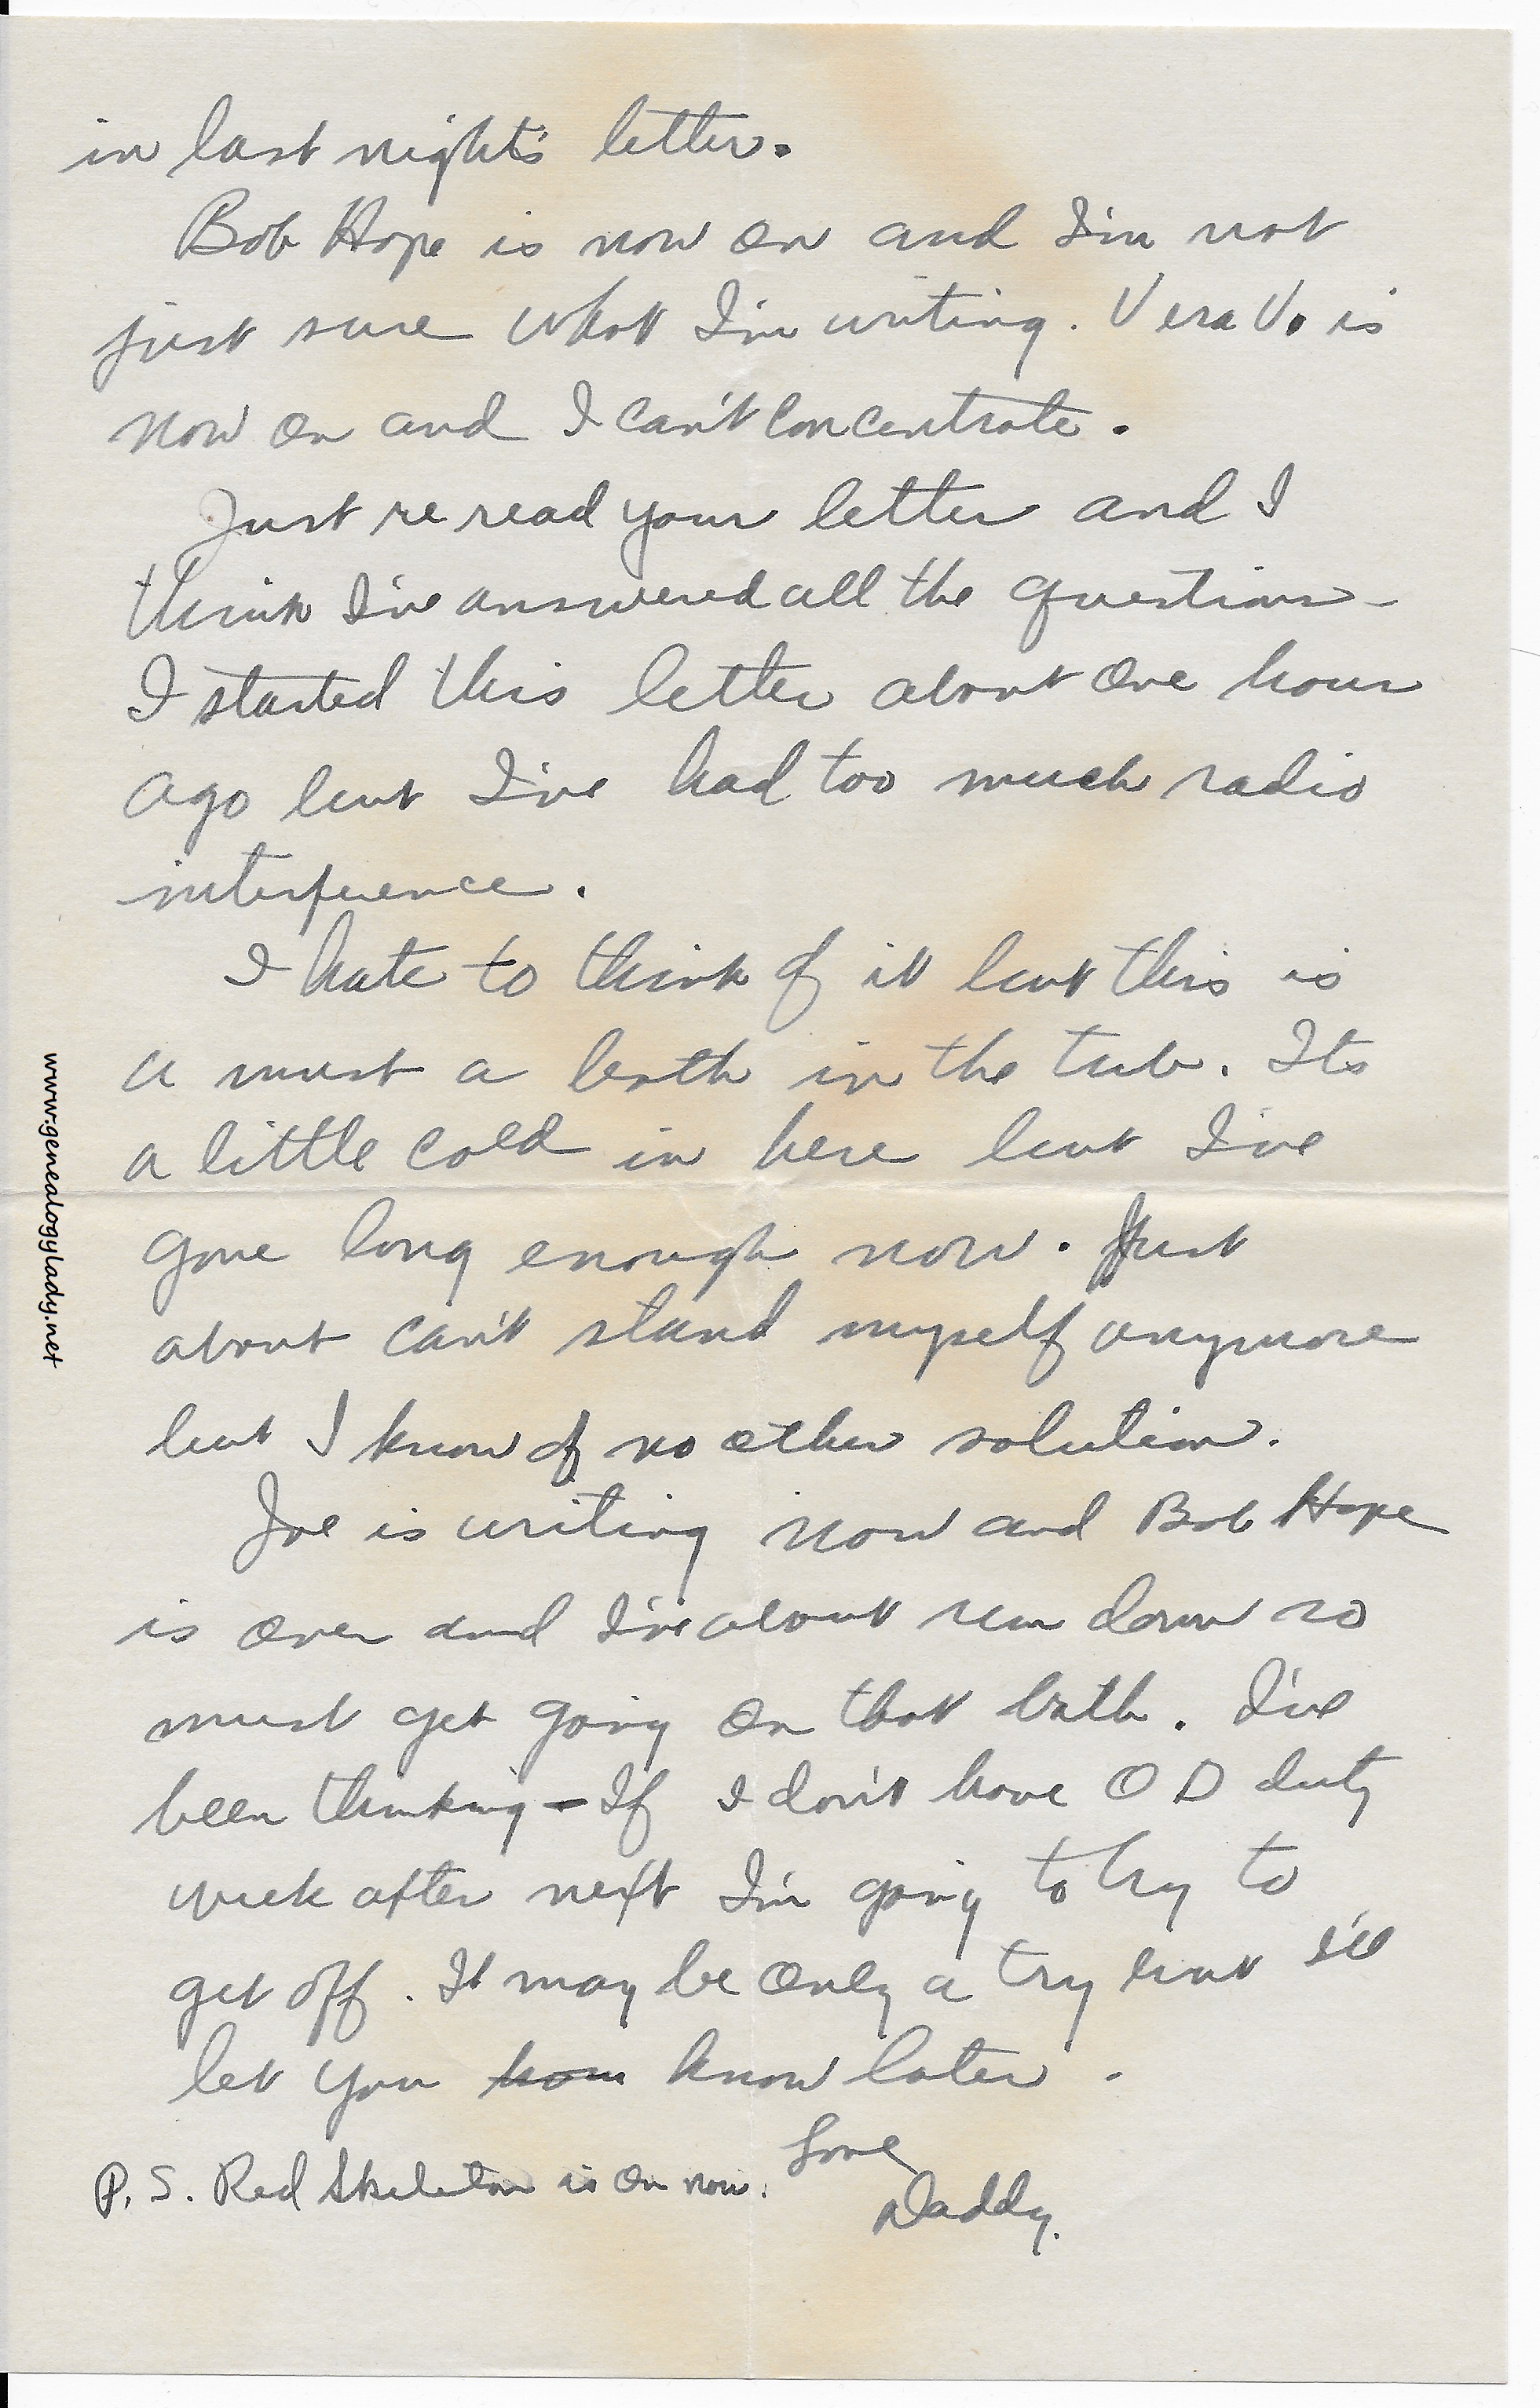 in last night's letter.
Bob Hope is now on and I'm not
just sure what I'm writing. Vera V. is
now on and I can't concentrate.
Just re read your letter and I
think I've answered all the questions -
I started this letter about one hour
ago but I've had too much radio
interference.
I hate to think of it but this is
a must a bath in the tub. Its
a little cold in here but I've
gone long enough now. Just
about can't stand myself anymore
but I know of no other solution.
Joe is writing now and Bob Hope
is over and I've about run down so
must get going on that bath. I've
been thinking - If I don't have O D duty
week after next I'm going to try to
get off. It may be only a try but I'll
let you know later.
Love
Daddy.
P. S. Red Skeleton is on now.
www.genealogylady.net